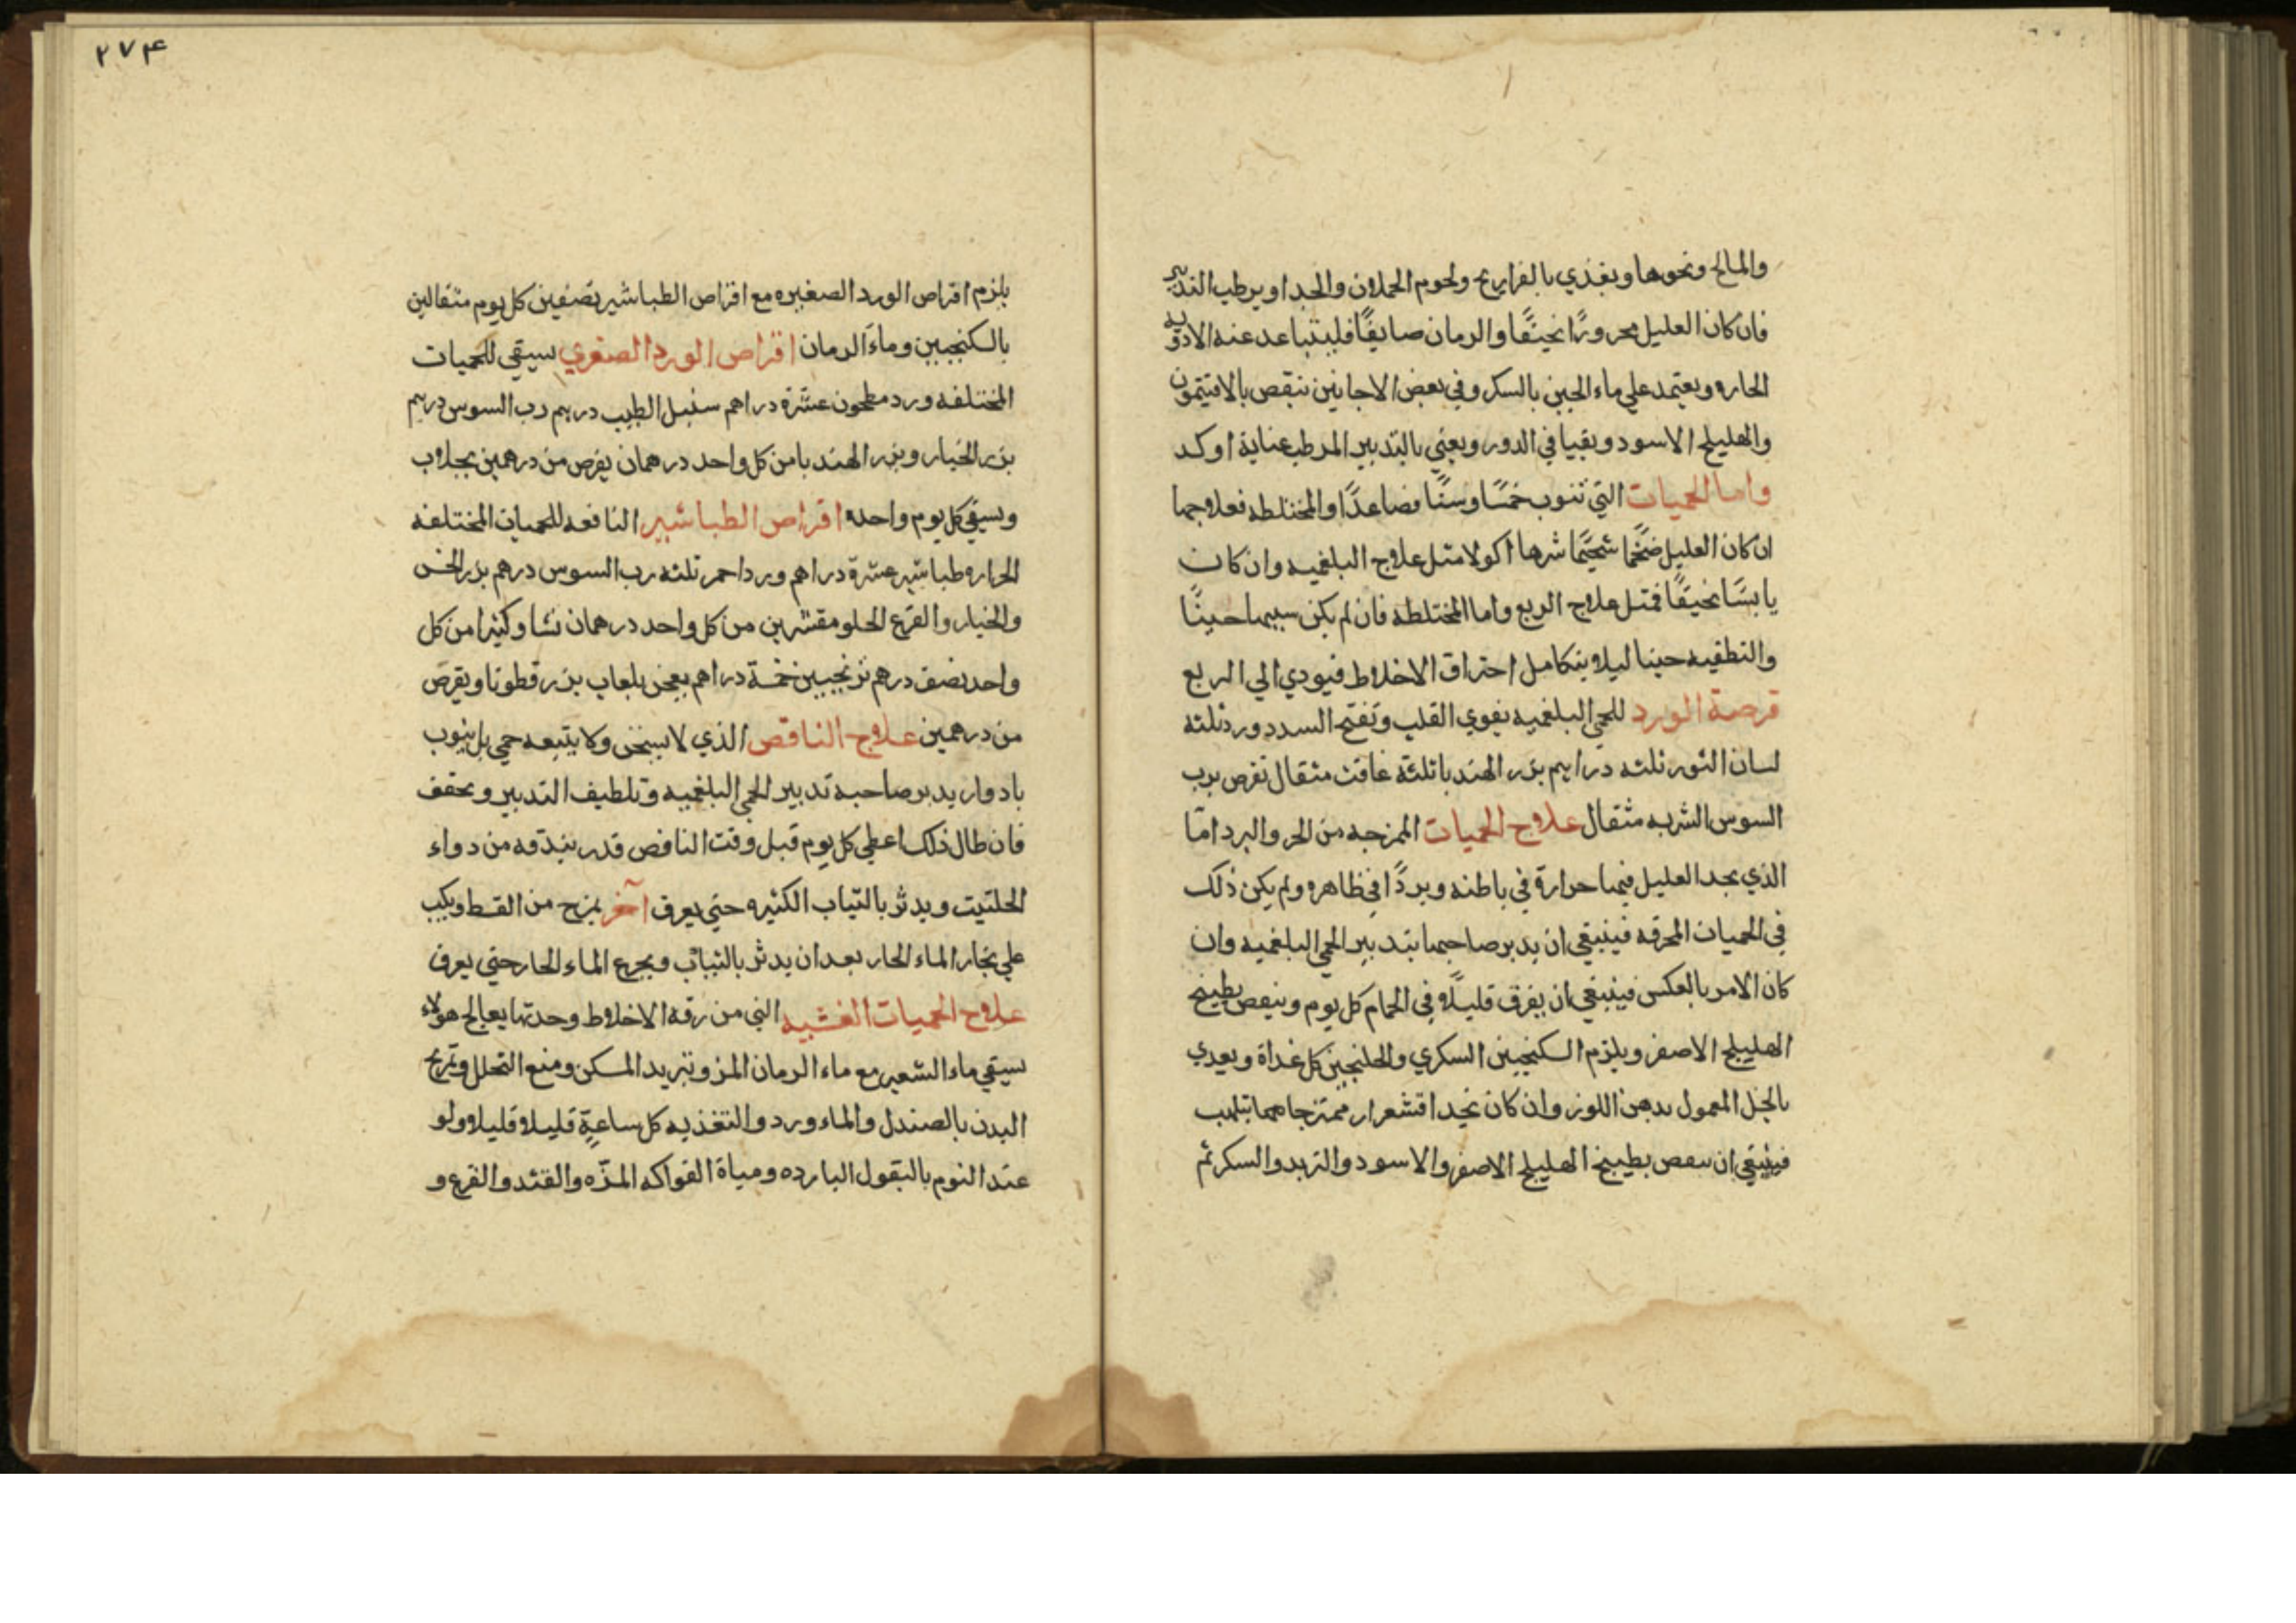 والمالح ونحوها ويغذي بالفراريج ولحوم الحملان والجدا ويرطب التدبير
فان كان العليل محرورًا نحيفًا والزمان صايفًا فليتباعد عنه الادويه
الحاره ويعتمد علي ماء الجبن بالسكر وفي بعض الاحايين ينقص بالافتيمون
والهليلج الاسود ويقيا في الدور ويعني بالتدبير المرطب عناية اوكد
واما الحميات التي تنوب خمسًا وستًا فصاعدًا والمختلطه فعلاجها
ان كان العليل ضخمًا شحيمًا شرها اكولا مثل علاج البلغميه وان كان
يابسًا نحيفًا فمثل علاج الربع واما المختلطه فان لم يكن سببها حينًا
والتطفيه حينا ليلا يتكامل احتراق الاخلاط فيودي الي الربع
قرصة الورد للحمي البلغميه يقوي القلب وتفتح السدد ورد ثلثه
لسان الثور ثلثه دراهم بزر الهندبا ثلثة غافت مثقال تقرص برب
السوس الشربه مثقال علاج الحميات الممزجه من الحر والبرد امّا
الذي يجد العليل فيها حرارة في باطنه وبردًا في ظاهره ولم يكن ذلك
في الحميات المحرقه فينبغي ان يدبر صاحبها بتدبير الحمي البلغميه وان
كان الامر بالعكس فينبغي ان يفرق قليلًا في الحمام كل يوم وينقص بطبيخ
الهليلج الاصفر ويلزم السكنجبين السكري والجلنجبين كل غداة ويعدي
بالخل المعمول بدهن اللوز وان كان نجد اقشعرار ممتزجا معها بتلهب
فينبغي ان ينقص بطبيخ الهليلج الاصفر والاسود والتربد والسكر ثم
٢٧٤
يلزم اقراص الورد الصغيره مع اقراص الطباشير بصنفين كل يوم مثقالين
بالسكنجبين وماء الرمان اقراص الورد الصغري يسقي للحميات
المختلفه ورد مطحون عشرة دراهم سنبل الطيب درهم رب السوس درهم
بزر الخيار وبزر الهندبا من كل واحد درهمان يقرص من درهمين بجلاب
ويسقي كل يوم واحده اقراص الطباشير النافعه للحميات المختلفه
الحراره طباشير عشرة دراهم ورد احمر ثلثه رب السوس درهم بزر الخس
والخيار والقرع الحلو مقشرين من كل واحد درهمان نشا وكثيرا من كل
واحد نصف درهم ترنجبين خمسة دراهم يعجن بلعاب بزر قطونا ويقرص
من درهمين علاج الناقص الذي لا يسخن ولا يتبعه حمي بل ينوب
بادوار يدبر صاحبه تدبير الحمي البلغميه وتلطيف التدبير ويجفف
فان طال ذلك اعطي كل يوم قبل وقت النافض قدر بندقه من دواء
الحلتيت ويدثر بالثياب الكثيره حتي يعرق آخر يمزج من القسط ويكب
علي بخار الماء الحار بعد ان يدثر بالثياب ويجرع الماء الحار حتي يعرق
علاج الحميات الغشيه التي من رقة الاخلاط وحدتها يعالج هولاء
يسقي ماء الشعير مع ماء الرمان المز وتبريد المسكن ومنع التحلل وتمريخ
البدن بالصندل والماء ورد والتغذيه كل ساعةٍ قليلا قليلا ولو
عند النوم بالبقول البارده ومياة الفواكه المزّه والقثد والقرع و